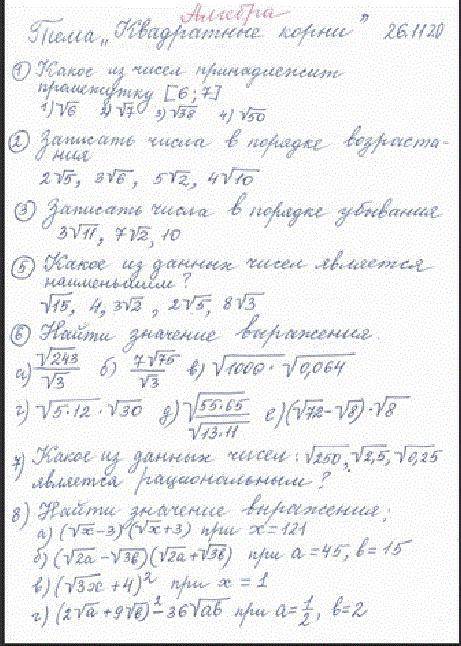 Алгебра
Тема „Квадратные корни” 26.11.20
① Какое из чисел принадлежит
промежутку [6;7]
1) √6 2) √7 3) √38 4) √50
② Записать числа в порядке возраста-
ния
2√5, 3√6, 5√2, 4√10
③ Записать числа в порядке убывания
3√11, 7√2, 10
⑤ Какое из данных чисел является
наименьшим?
√15, 4, 3√2, 2√5, 8√3
⑥ Найти значение выражения.
а) √243/√3 б) 7√75/√3 в) √1000 · √0,064
г) √5·12 · √30 д) √55·65/√13·11 е) (√72-√8)·√8
7) Какое из данных чисел: √250, √2,5, √0,25
является рациональным?
8) Найти значение выражения:
а) (√x-3)(√x+3) при x=121
б) (√2a-√3в)(√2a+√3в) при a=45, в=15
в) (√3x+4)² при x=1
г) (2√a+9√в)²-36√aв при a=1/2, в=2